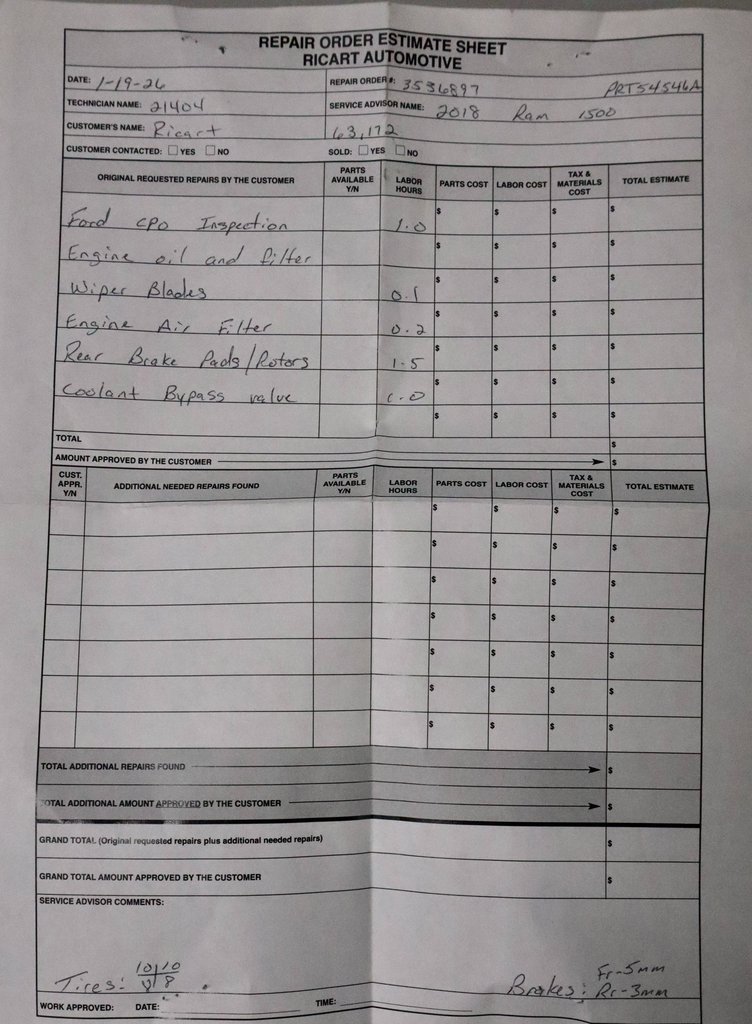 REPAIR ORDER ESTIMATE SHEET
RICART AUTOMOTIVE
DATE: 1-19-26 REPAIR ORDER #: 3536897 PRT54546A
TECHNICIAN NAME: 21404 SERVICE ADVISOR NAME: 2018 Ram 1500
CUSTOMER'S NAME: Ricart 63,172
CUSTOMER CONTACTED: YES NO SOLD: YES NO
ORIGINAL REQUESTED REPAIRS BY THE CUSTOMER PARTS AVAILABLE Y/N LABOR HOURS PARTS COST LABOR COST TAX & MATERIALS COST TOTAL ESTIMATE
Ford CPO Inspection 1.0 $ $ $ $
Engine oil and filter $ $ $ $
Wiper Blades 0.1 $ $ $ $
Engine Air Filter 0.2 $ $ $ $
Rear Brake Pads/Rotors 1.5 $ $ $ $
Coolant Bypass valve 1.0 $ $ $ $
$ $ $ $
TOTAL $
AMOUNT APPROVED BY THE CUSTOMER $
CUST. APPR. Y/N ADDITIONAL NEEDED REPAIRS FOUND PARTS AVAILABLE Y/N LABOR HOURS PARTS COST LABOR COST TAX & MATERIALS COST TOTAL ESTIMATE
$ $ $ $
$ $ $ $
$ $ $ $
$ $ $ $
$ $ $ $
$ $ $ $
$ $ $ $
TOTAL ADDITIONAL REPAIRS FOUND $
TOTAL ADDITIONAL AMOUNT APPROVED BY THE CUSTOMER $
GRAND TOTAL (Original requested repairs plus additional needed repairs) $
GRAND TOTAL AMOUNT APPROVED BY THE CUSTOMER $
SERVICE ADVISOR COMMENTS:
10 10 Fr-5mm
Tires: 8 8 Brakes: Rr-3mm
WORK APPROVED: DATE: TIME: